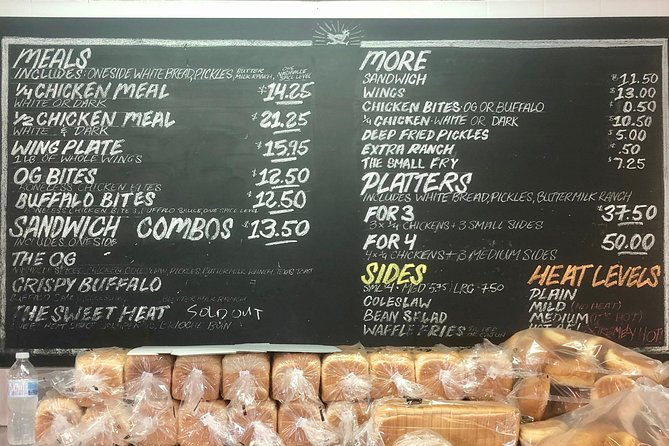 MEALS
INCLUDES: ONE SIDE WHITE BREAD, PICKLES, BUTTER MILK RANCH, ONE NASHVILLE SPICE LEVEL
1/4 CHICKEN MEAL $14.25
WHITE OR DARK
1/2 CHICKEN MEAL $21.25
WHITE & DARK
WING PLATE $15.95
1 LB OF WHOLE WINGS
OG BITES $12.50
BONELESS CHICKEN BITES
BUFFALO BITES $12.50
BONELESS CHICKEN BITES, BUFFALO SAUCE, ONE SPICE LEVEL
SANDWICH COMBOS $13.50
INCLUDES ONE SIDE
THE OG
PICKLES, BUTTERMILK RANCH, TEXAS TOAST
CRISPY BUFFALO
BUTTERMILK RANCH
THE SWEET HEAT SOLD OUT
MORE
SANDWICH $11.50
WINGS $13.00
CHICKEN BITES OG OR BUFFALO 0.50
1/4 CHICKEN WHITE OR DARK $10.50
DEEP FRIED PICKLES $5.00
EXTRA RANCH $.50
THE SMALL FRY $7.25
PLATTERS
INCLUDES WHITE BREAD, PICKLES, BUTTERMILK RANCH
FOR 3 $37.50
3 x 1/4 CHICKENS + 3 SMALL SIDES
FOR 4 50.00
4 x 1/4 CHICKENS + 3 MEDIUM SIDES
SIDES
SML 4 · MED 5.95 / LRG 7.50
COLESLAW
BEAN SALAD
WAFFLE FRIES
HEAT LEVELS
PLAIN
MILD (NO HEAT)
MEDIUM (IT'S HOT)
HOT EXTREMELY HOT